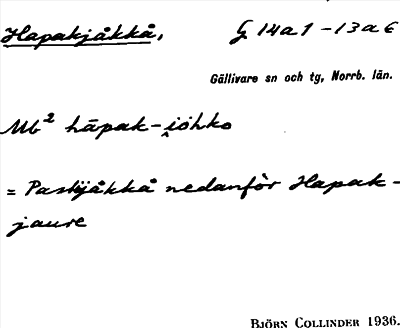 Hapakjåkkå, G 14a1-13a6
Gällivare sn och tg, Norrb. län.
Mb² hāpak-i̭ohko
= Paskijåkkå nedanför Hapak-
jaure
BJÖRN COLLINDER 1936.